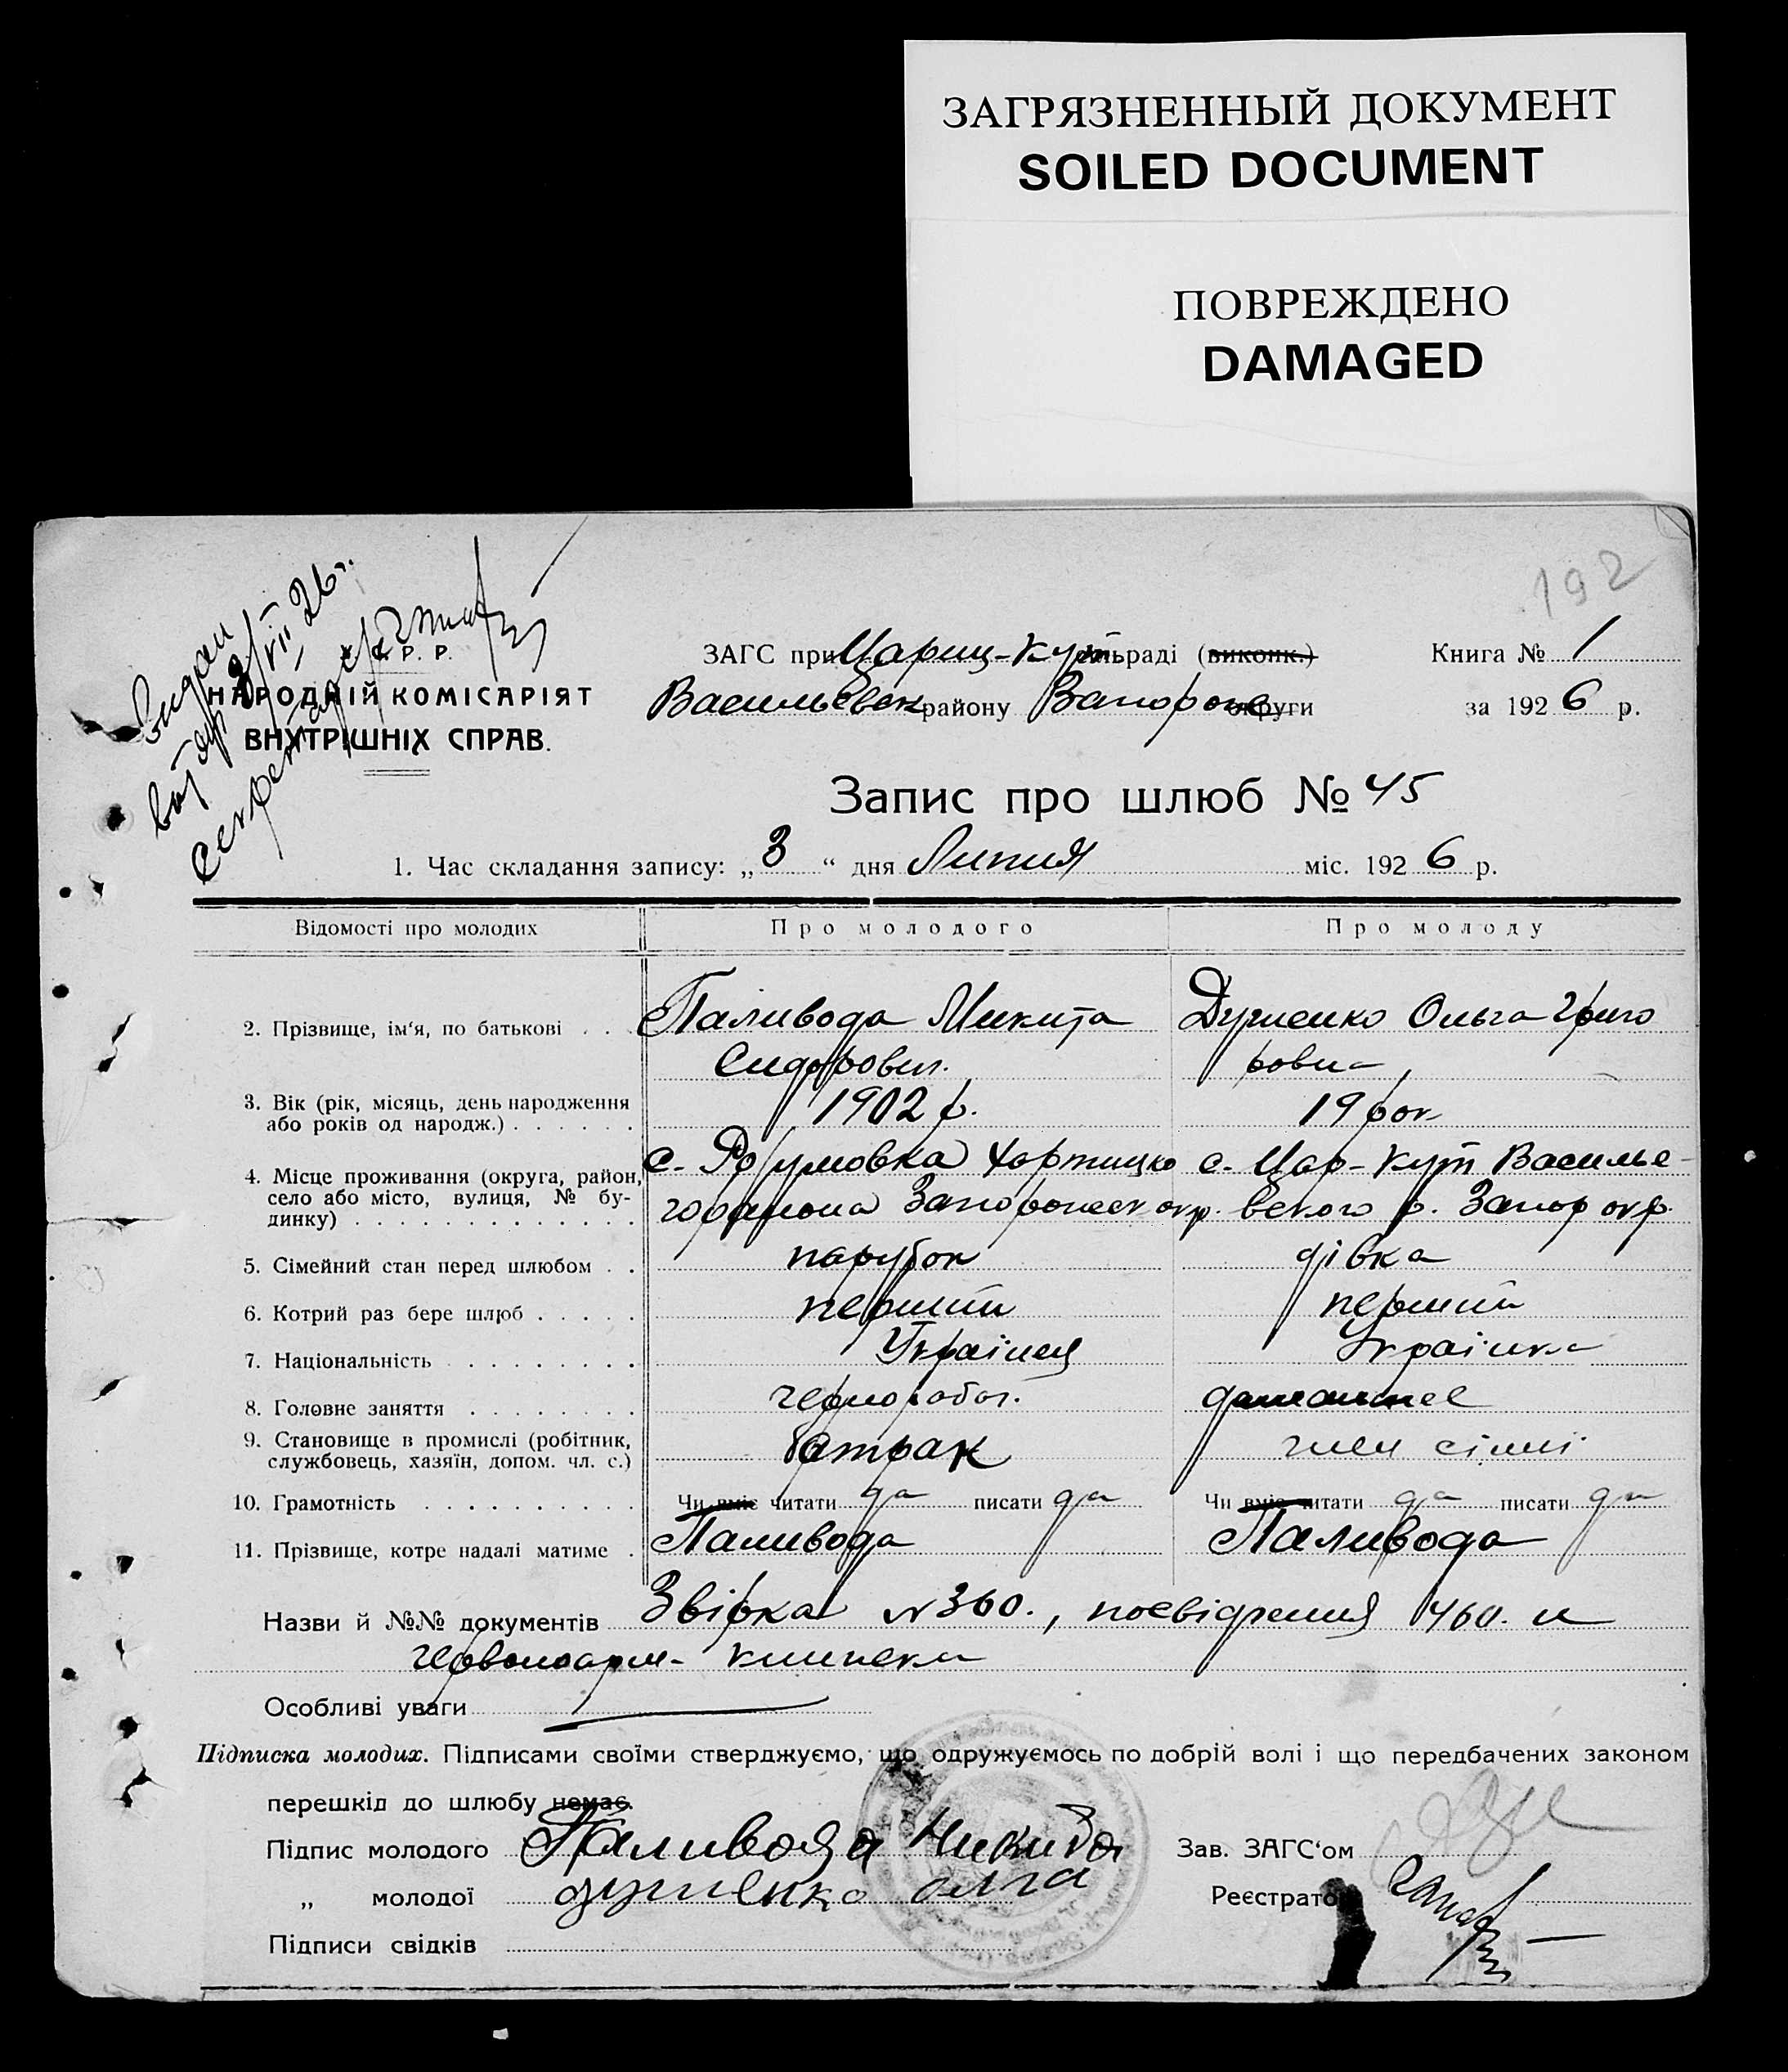 ЗАГРЯЗНЕННЫЙ ДОКУМЕНТ
SOILED DOCUMENT
ПОВРЕЖДЕНО
DAMAGED
192
Видан
3/VII 26 г.
Секретарь
С. Р. Р.
НАРОДНІЙ КОМІСАРІЯТ
ВНУТРІШНІХ СПРАВ.
ЗАГС при Цариц-Кут сільраді (виконк.) Книга № 1
Васильевск району Запорож округи за 1926 р.
Запис про шлюб № 45
1. Час складання запису: „3“ дня Липня міс. 1926 р.
Відомості про молодих Про молодого Про молоду
2. Прізвище, ім‘я, по батькові . . Паливода Микита Ольга Григо
Сидорович. ровна
3. Вік (рік, місяць, день народження 1902 р. 19 рок
або років од народж.) . . . . . .
4. Місце проживання (округа, район, с. Розумовка Хортицко с. Цар-Кут Василье-
село або місто, вулиця, № бу- го района Запорожеск окр. вского р. Запор окр.
динку) . . . . . . . . . . . . .
5. Сімейний стан перед шлюбом . . парубок дівка
6. Котрий раз бере шлюб . . . . . перший перший
7. Національність . . . . . . . . Українец Українка
8. Головне заняття . . . . . . . чернорабоч.
9. Становище в промислі (робітник, батрак член сімьї
службовець, хазяїн, допом. чл. с.)
10. Грамотність . . . . . . . . . Чи вміє читати да писати да Чи вміє читати да писати да
11. Прізвище, котре надалі матиме . Паливода Паливода
Назви й №№ документів Звірка № 360., посвідчення 460. и
червоноарм- книжека
Особливі уваги
Підписка молодих. Підписами своїми стверджуємо, що одружуємось по добрій волі і що передбачених законом
перешкід до шлюбу немає.
Підпис молодого Паливода Никида Зав. ЗАГС‘ом
„ молодої душенко олга Реєстратор
Підписи свідків